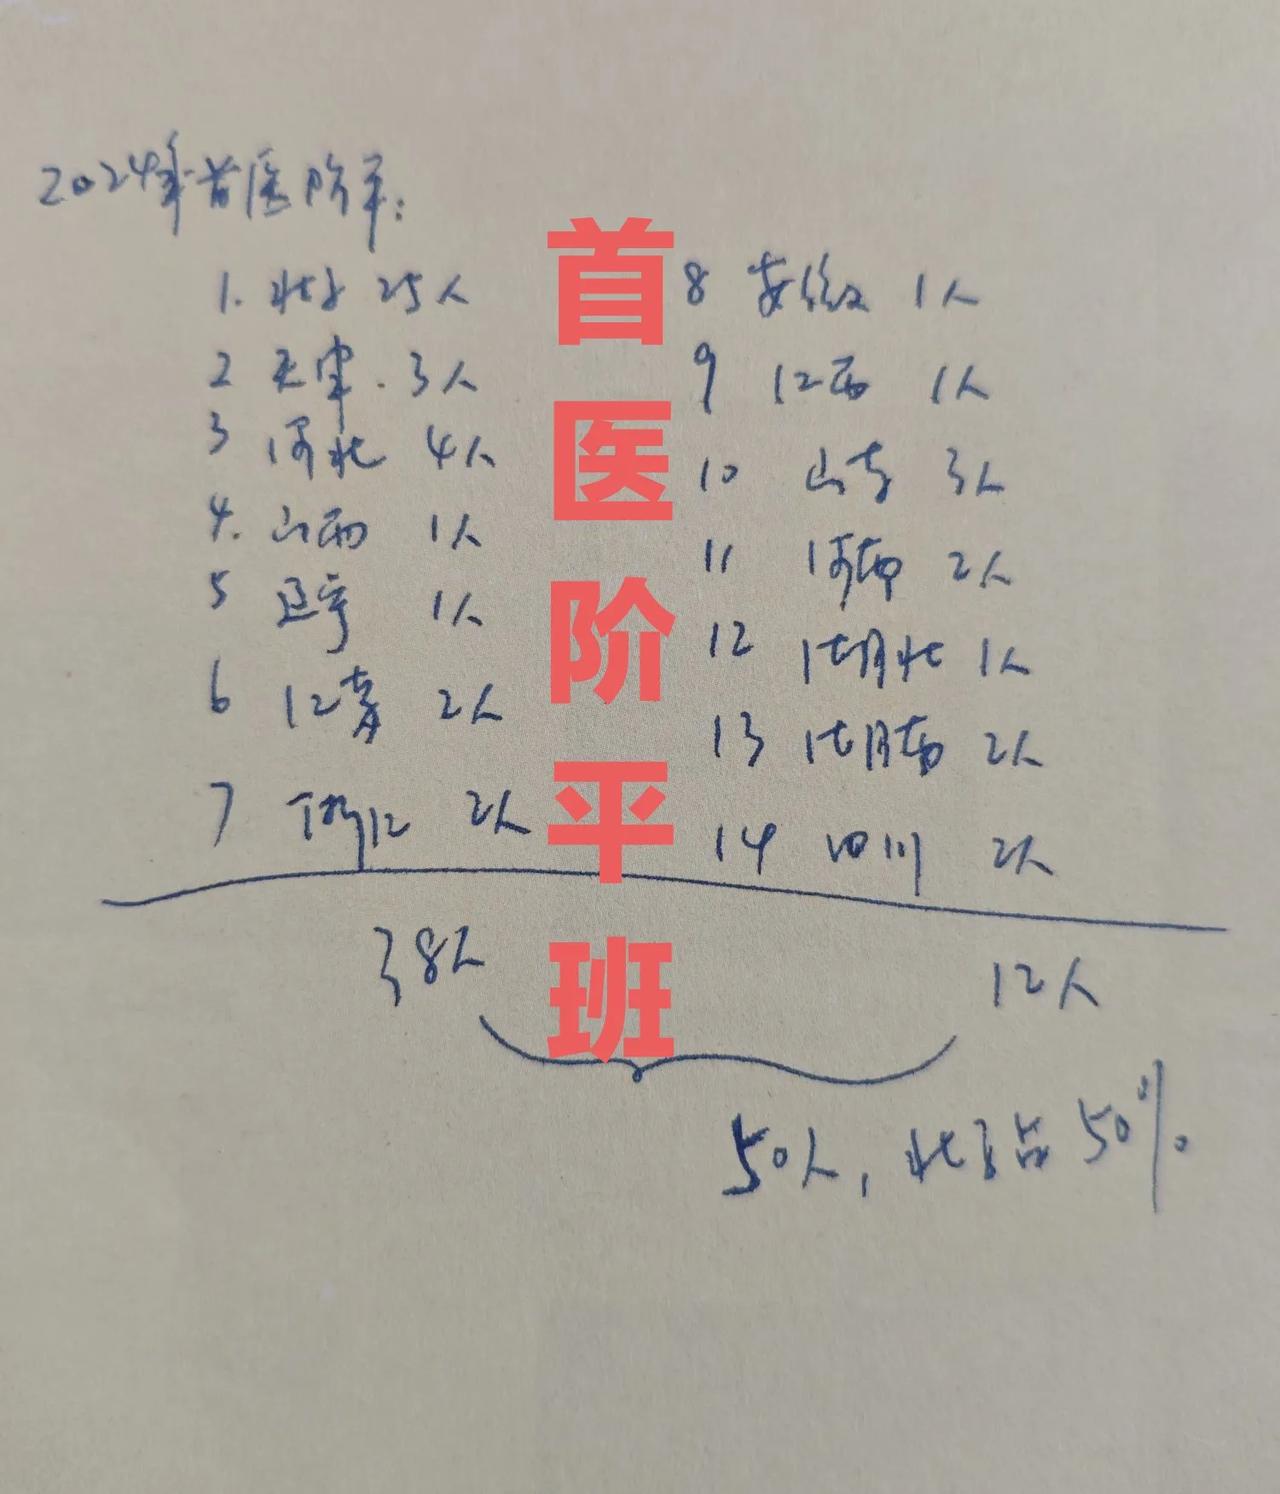 2024年首医阶平:
1. 北京 25人
2 天津. 3人
3 河北 4人
4. 山西 1人
5 辽宁 1人
6 江苏 2人
7 浙江 2人
38人
8 安徽 1人
9 江西 1人
10 山东 3人
11 河南 2人
12 湖北 1人
13 湖南 2人
14 四川 2人
12人
50人, 北京占50%
首医阶平班